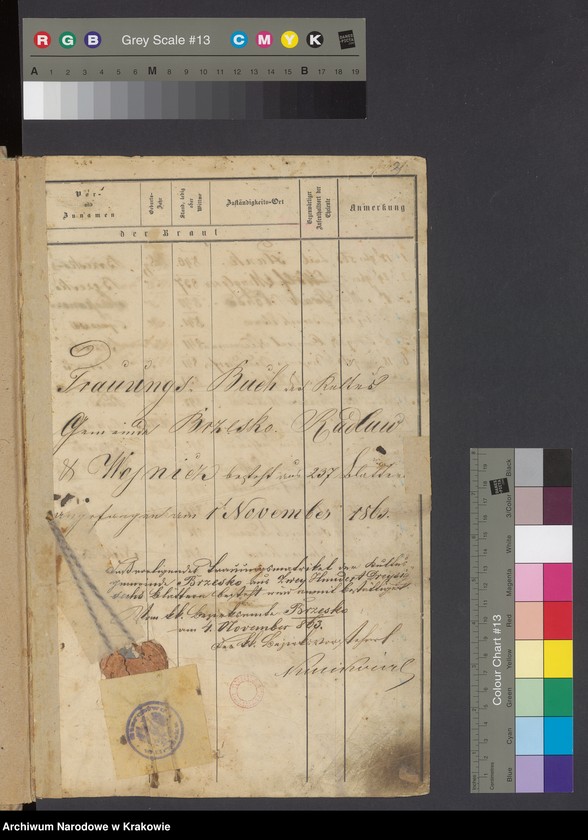 R G B Grey Scale #13 C M Y K
A 1 2 3 4 5 6 M 8 9 10 11 12 13 14 15 B 17 18 19
Vor-
und
Zunamen
Geburts-
Jahr
Stand, ledig
oder
Witwe
Zuständigkeits-Ort
Gegenwärtiger
Aufenthaltsort der
Eheleute
Anmerkung
der Braut
Trauungs. Buch der Kultus
Gemeinde Brzesko. Radłow
& Wojnicz besteht aus 237 Blätter
angefangen am 1t November 1863.
Daß vorliegendes Trauungsmatrikel der Kultus
gemeinde Brzesko aus Zwey Hundert Dreyßi
Blättern besteht wird anmit bestättiget
Vom kk. Bezirksamte Brzesko
am 4. November 863.
Der kk. Bezirksvorsteher
Colour Chart #13
Black
3/Color
White
Magenta
Red
Yellow
Green
Cyan
Blue
Inches
Centimetres
Archiwum Narodowe w Krakowie